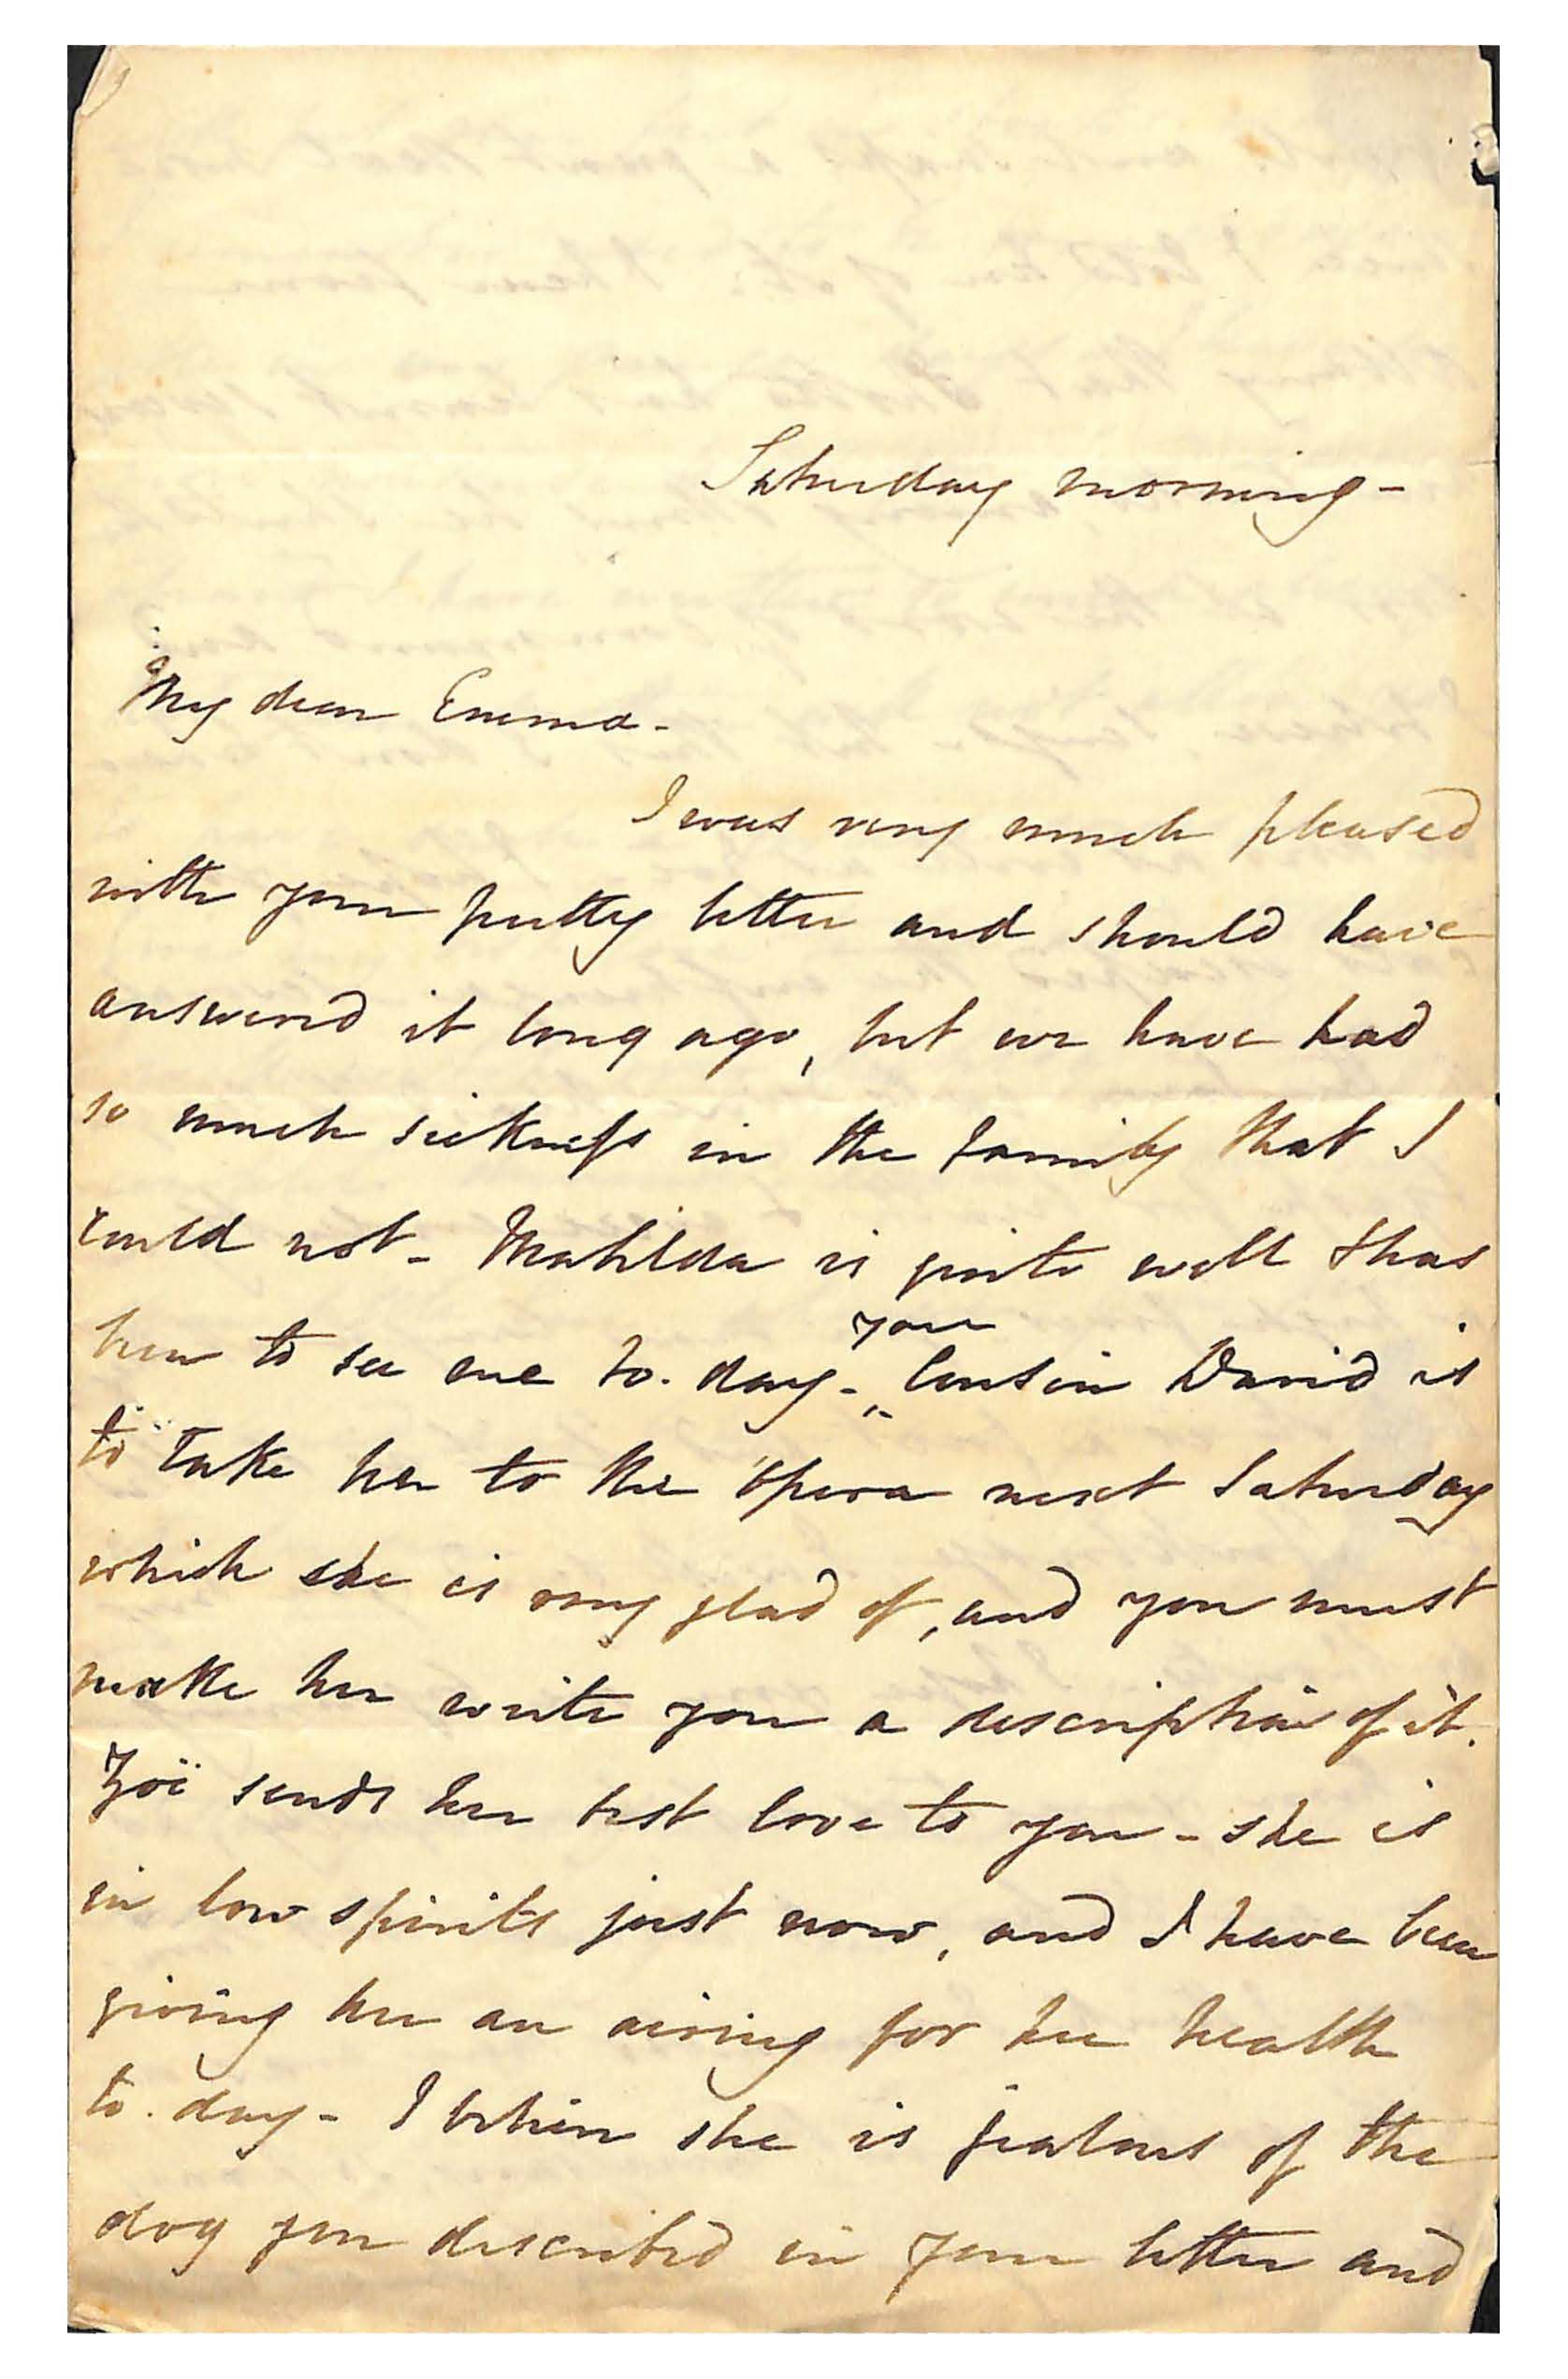 Saturday morning -
My dear Emma -
I was very much pleased
with your pretty letter and should have
answered it long ago, but we have had
so much sickness in the family that I
could not - Mathilda is quite well & has
your
been to see me to-day - Cousin David is
to take her to the Opera next Saturday
which she is very glad of, and you must
make her write you a description of it.
Zoë sends her best love to you - she is
in low spirits just now, and I have been
giving her an airing for her health
to-day - I believe she is jealous of the
dog you described in your letter and